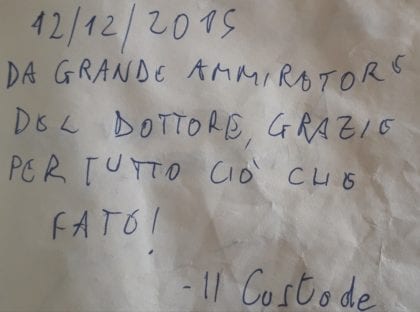 12/12/2015
DA GRANDE AMMIRATORE
DEL DOTTORE, GRAZIE
PER TUTTO CIÒ CHE
FATO!
-Il Custode